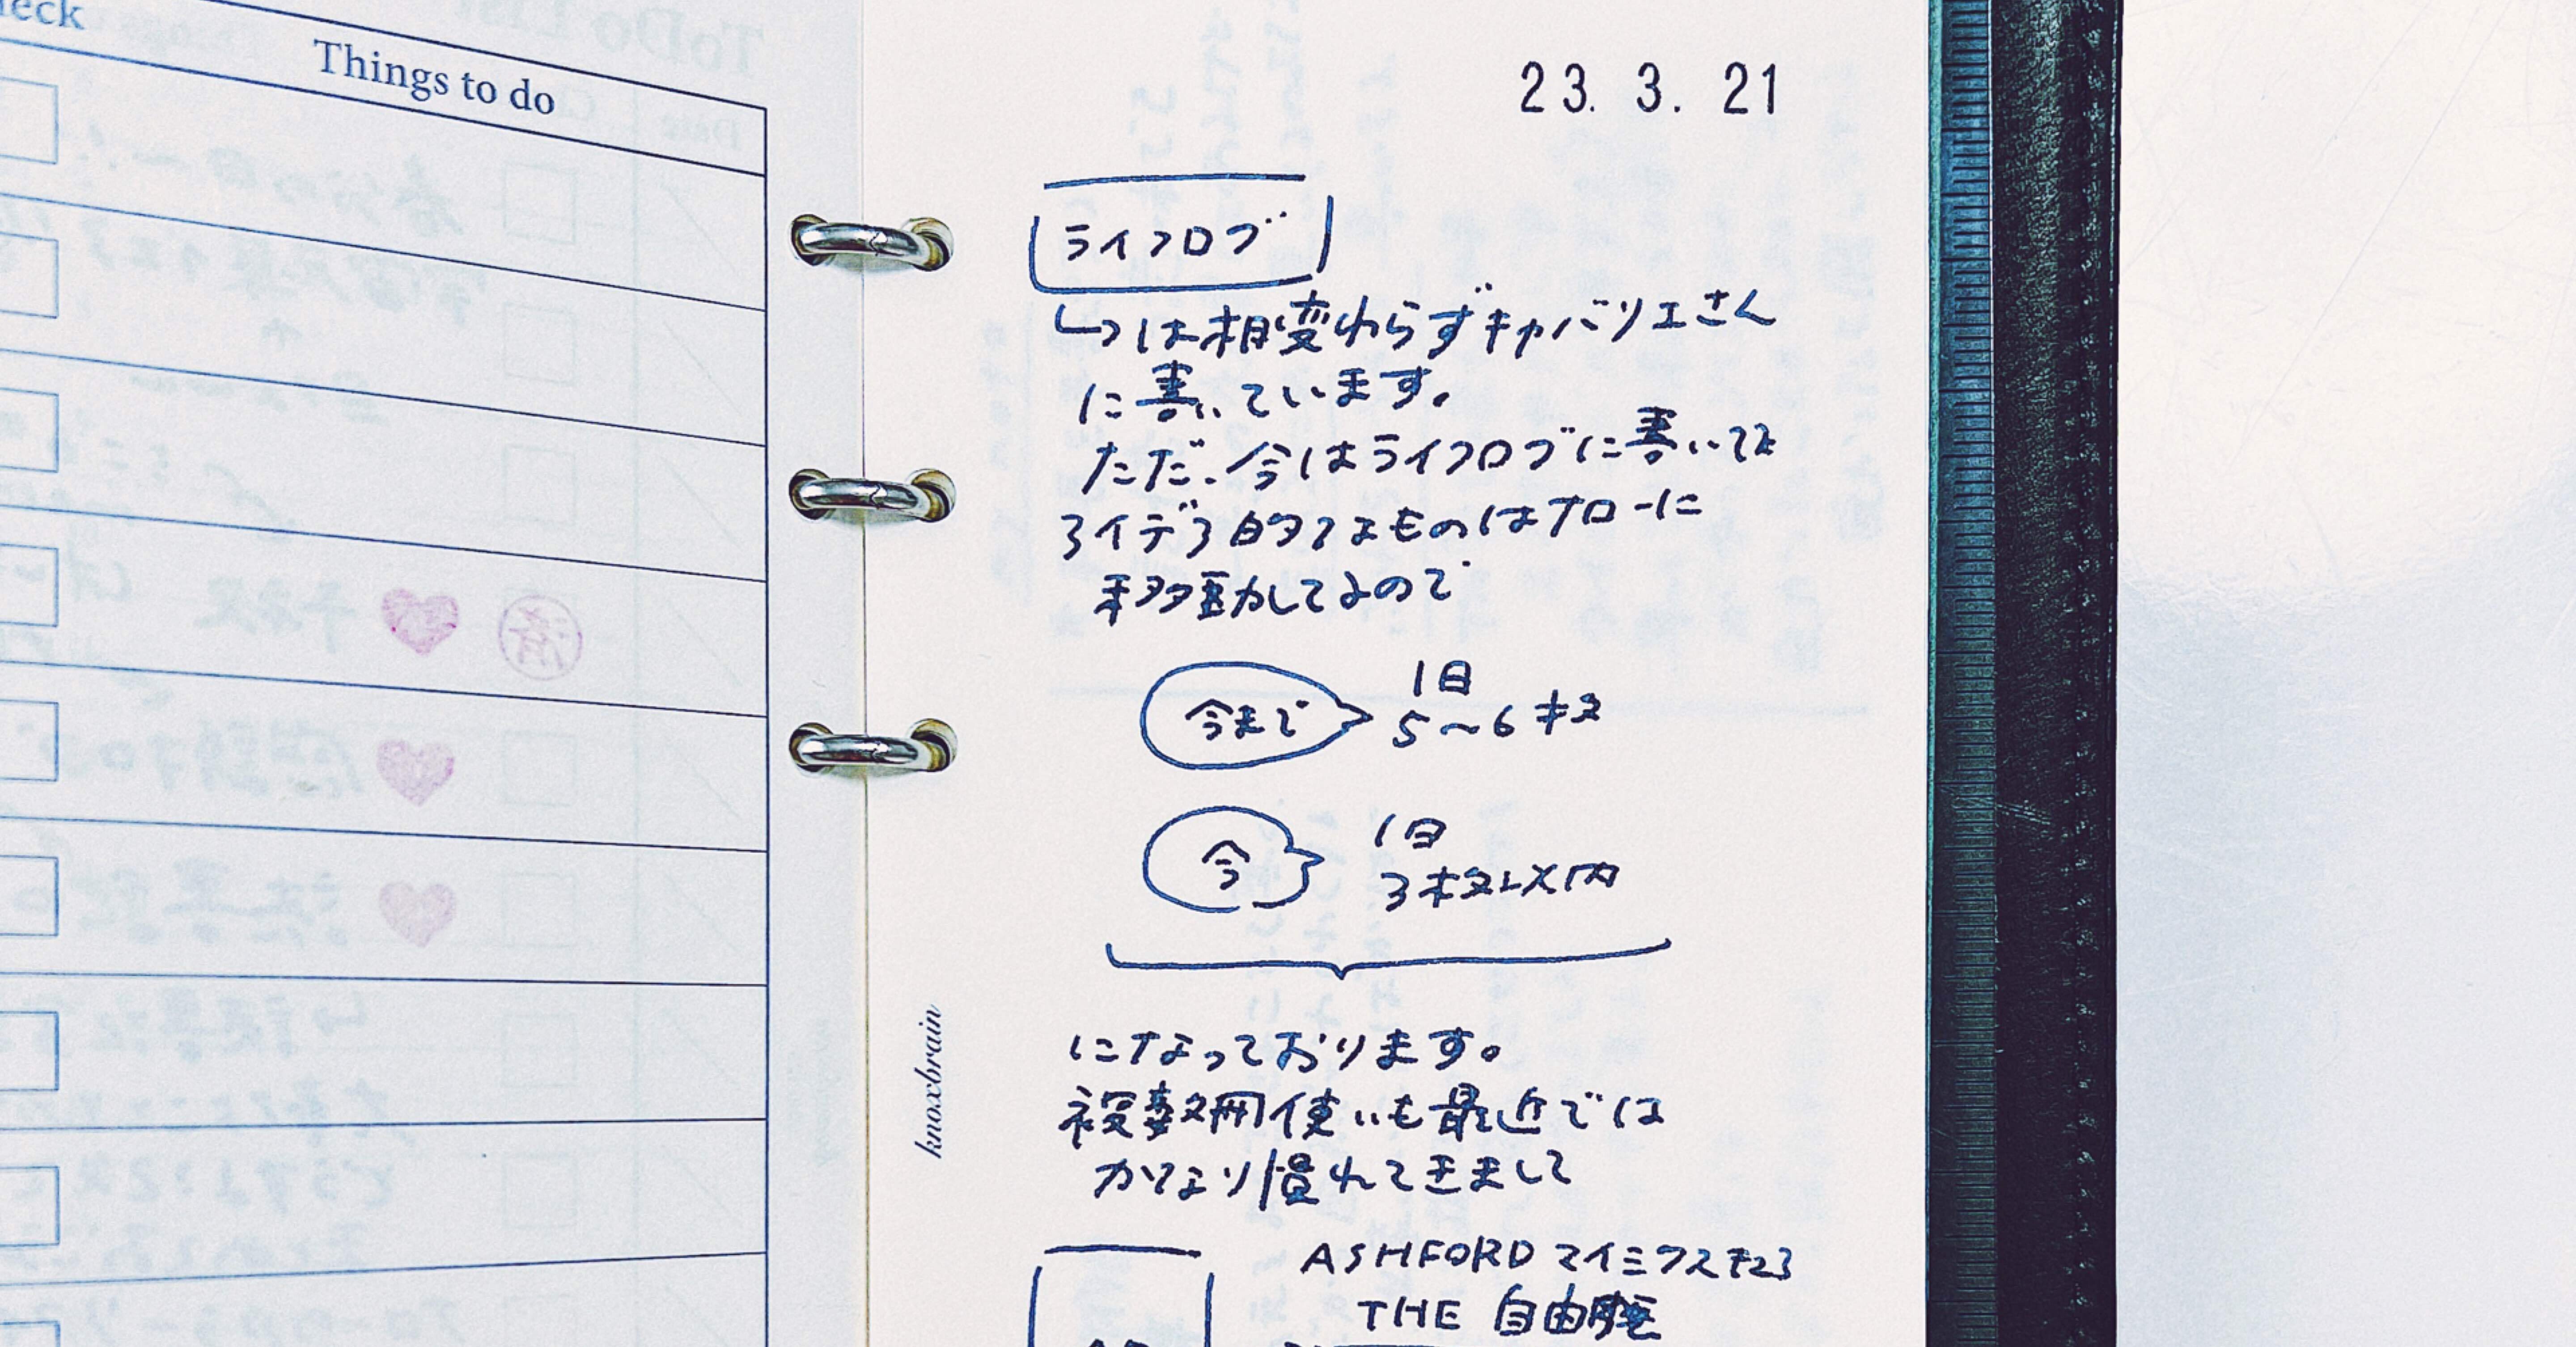 eck
Things to do
23. 3. 21
ライフログ
↳は相変わらずキャバリエさん
に書いています。
ただ、今はライフログに書いてた
アイデア的なものはナローに
移動してるので
今まで
1日
5〜6枚
今
1日
3枚以内
になっております。
複数冊使いも最近では
かなり慣れてきまして
knoxbrain
ASHFORD マイミクスチュア
THE 自由